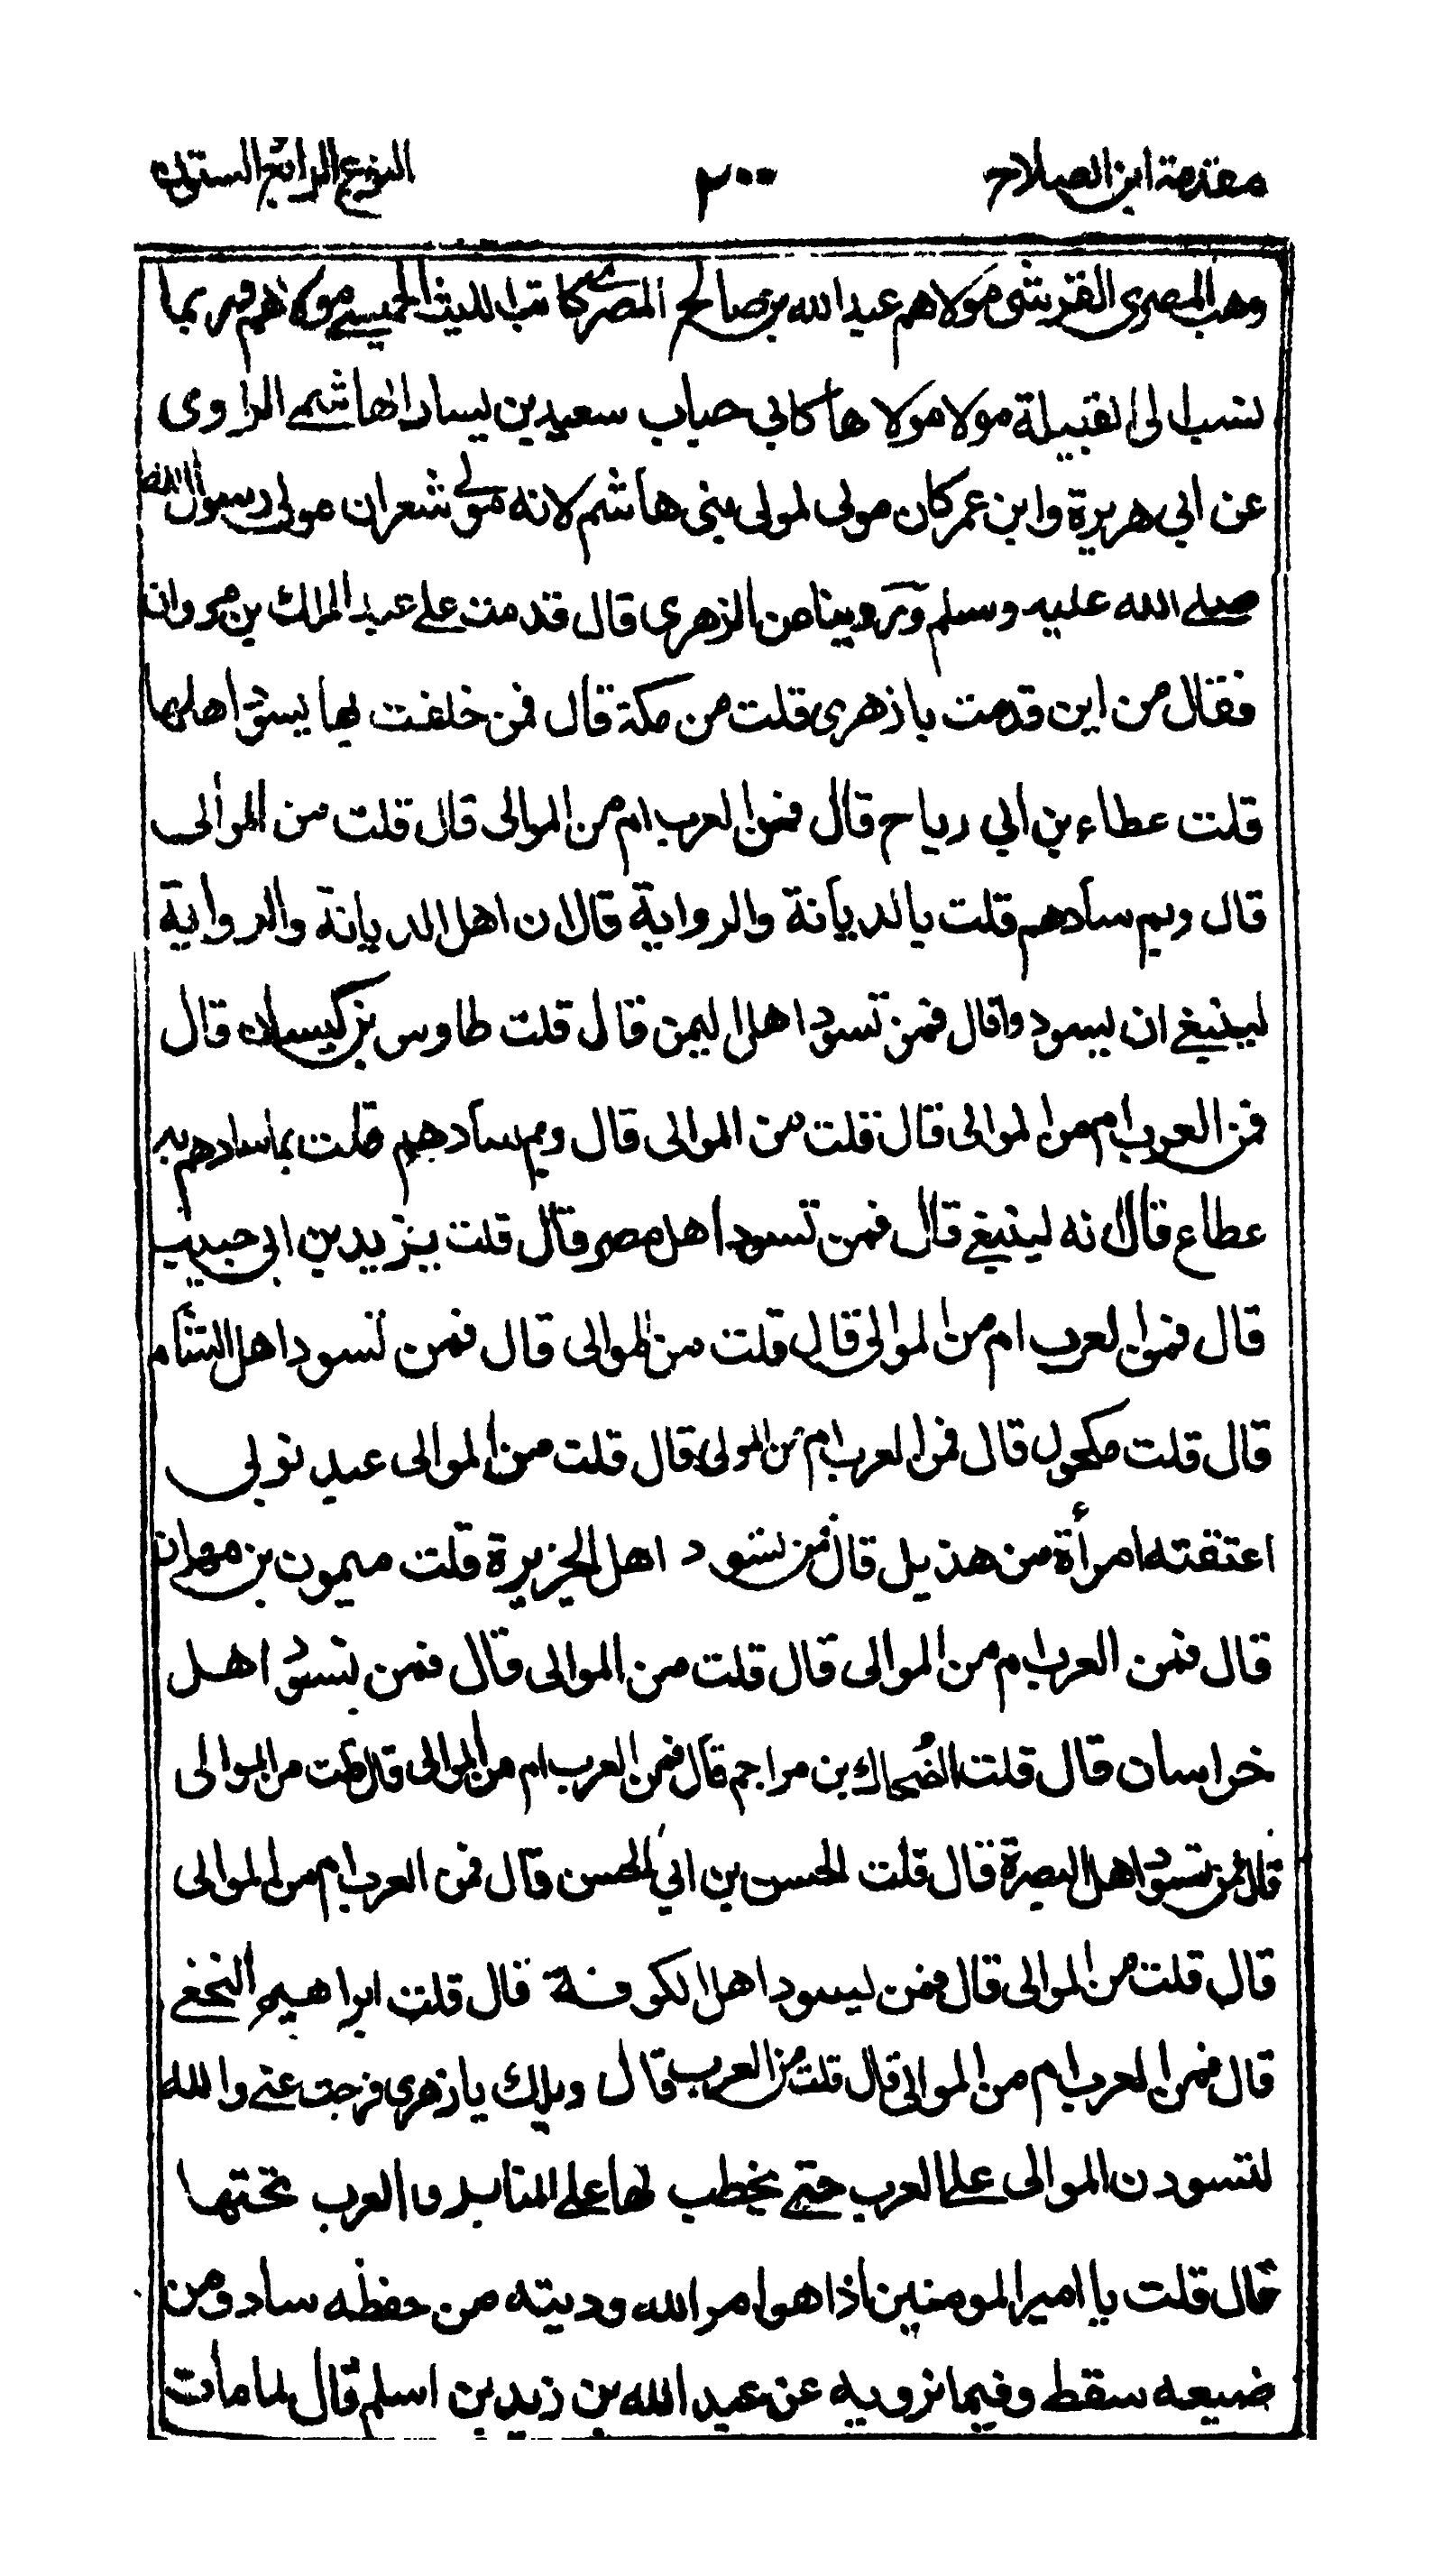 مقدمة ابن الصلاح ٢٠٠ النوع الرابع الستون
وهب المصرى القرشى مولاهم عبد الله بن صالح المصرى كاتب الليث الجهنى مولاهم وربما
نسب الى القبيلة مولا مولاها كابي حباب سعيد بن يسار الهاشمى الراوى
عن ابي هريرة وابن عمر كان مولى لمولى بنى هاشم لانه مولى شعران مولى رسول الله
صلى الله عليه وسلم وروينا عن الزهرى قال قدمت على عبد الملك بن مروان
فقال من اين قدمت يا زهرى قلت من مكة قال فمن خلفت بها يسود اهلها
قلت عطاء بن ابي رباح قال فمن العرب ام من الموالى قال قلت من الموالى
قال وبم سادهم قلت بالديانة والرواية قال ان اهل الديانة والرواية
لينبغى ان يسودوا قال فمن تسود اهل اليمن قال قلت طاوس بن كيسان قال
فمن العرب ام من الموالى قال قلت من الموالى قال وبم سادهم قلت بما سادهم به
عطاء قال انه لينبغى قال فمن تسود اهل مصر قال قلت يزيد بن ابي حبيب
قال فمن العرب ام من الموالى قال قلت من الموالى قال فمن تسود اهل الشام
قال قلت مكحول قال فمن العرب ام من المولى قال قلت من الموالى عبد نوبى
اعتقته امرأة من هذيل قال فمن تسود اهل الجزيرة قلت ميمون بن مهران
قال فمن العرب ام من الموالى قال قلت من الموالى قال فمن يسود اهل
خراسان قال قلت الضحاك بن مزاحم قال فمن العرب ام من الموالى قال قلت من الموالى
قال فمن تسود اهل البصرة قال قلت الحسن بن ابي الحسن قال فمن العرب ام من الموالى
قال قلت من الموالى قال فمن يسود اهل الكوفة قال قلت ابراهيم النخعى
قال فمن العرب ام من الموالى قال قلت من العرب قال ويلك يا زهرى فرجت عنى والله
لتسودن الموالى على العرب حتى يخطب لها على المنابر والعرب تحتها
قال قلت يا امير المومنين اذا هو امر الله ودينه من حفظه ساد ومن
ضيعه سقط وفيما نرويه عن عبد الله بن زيد بن اسلم قال لما مات